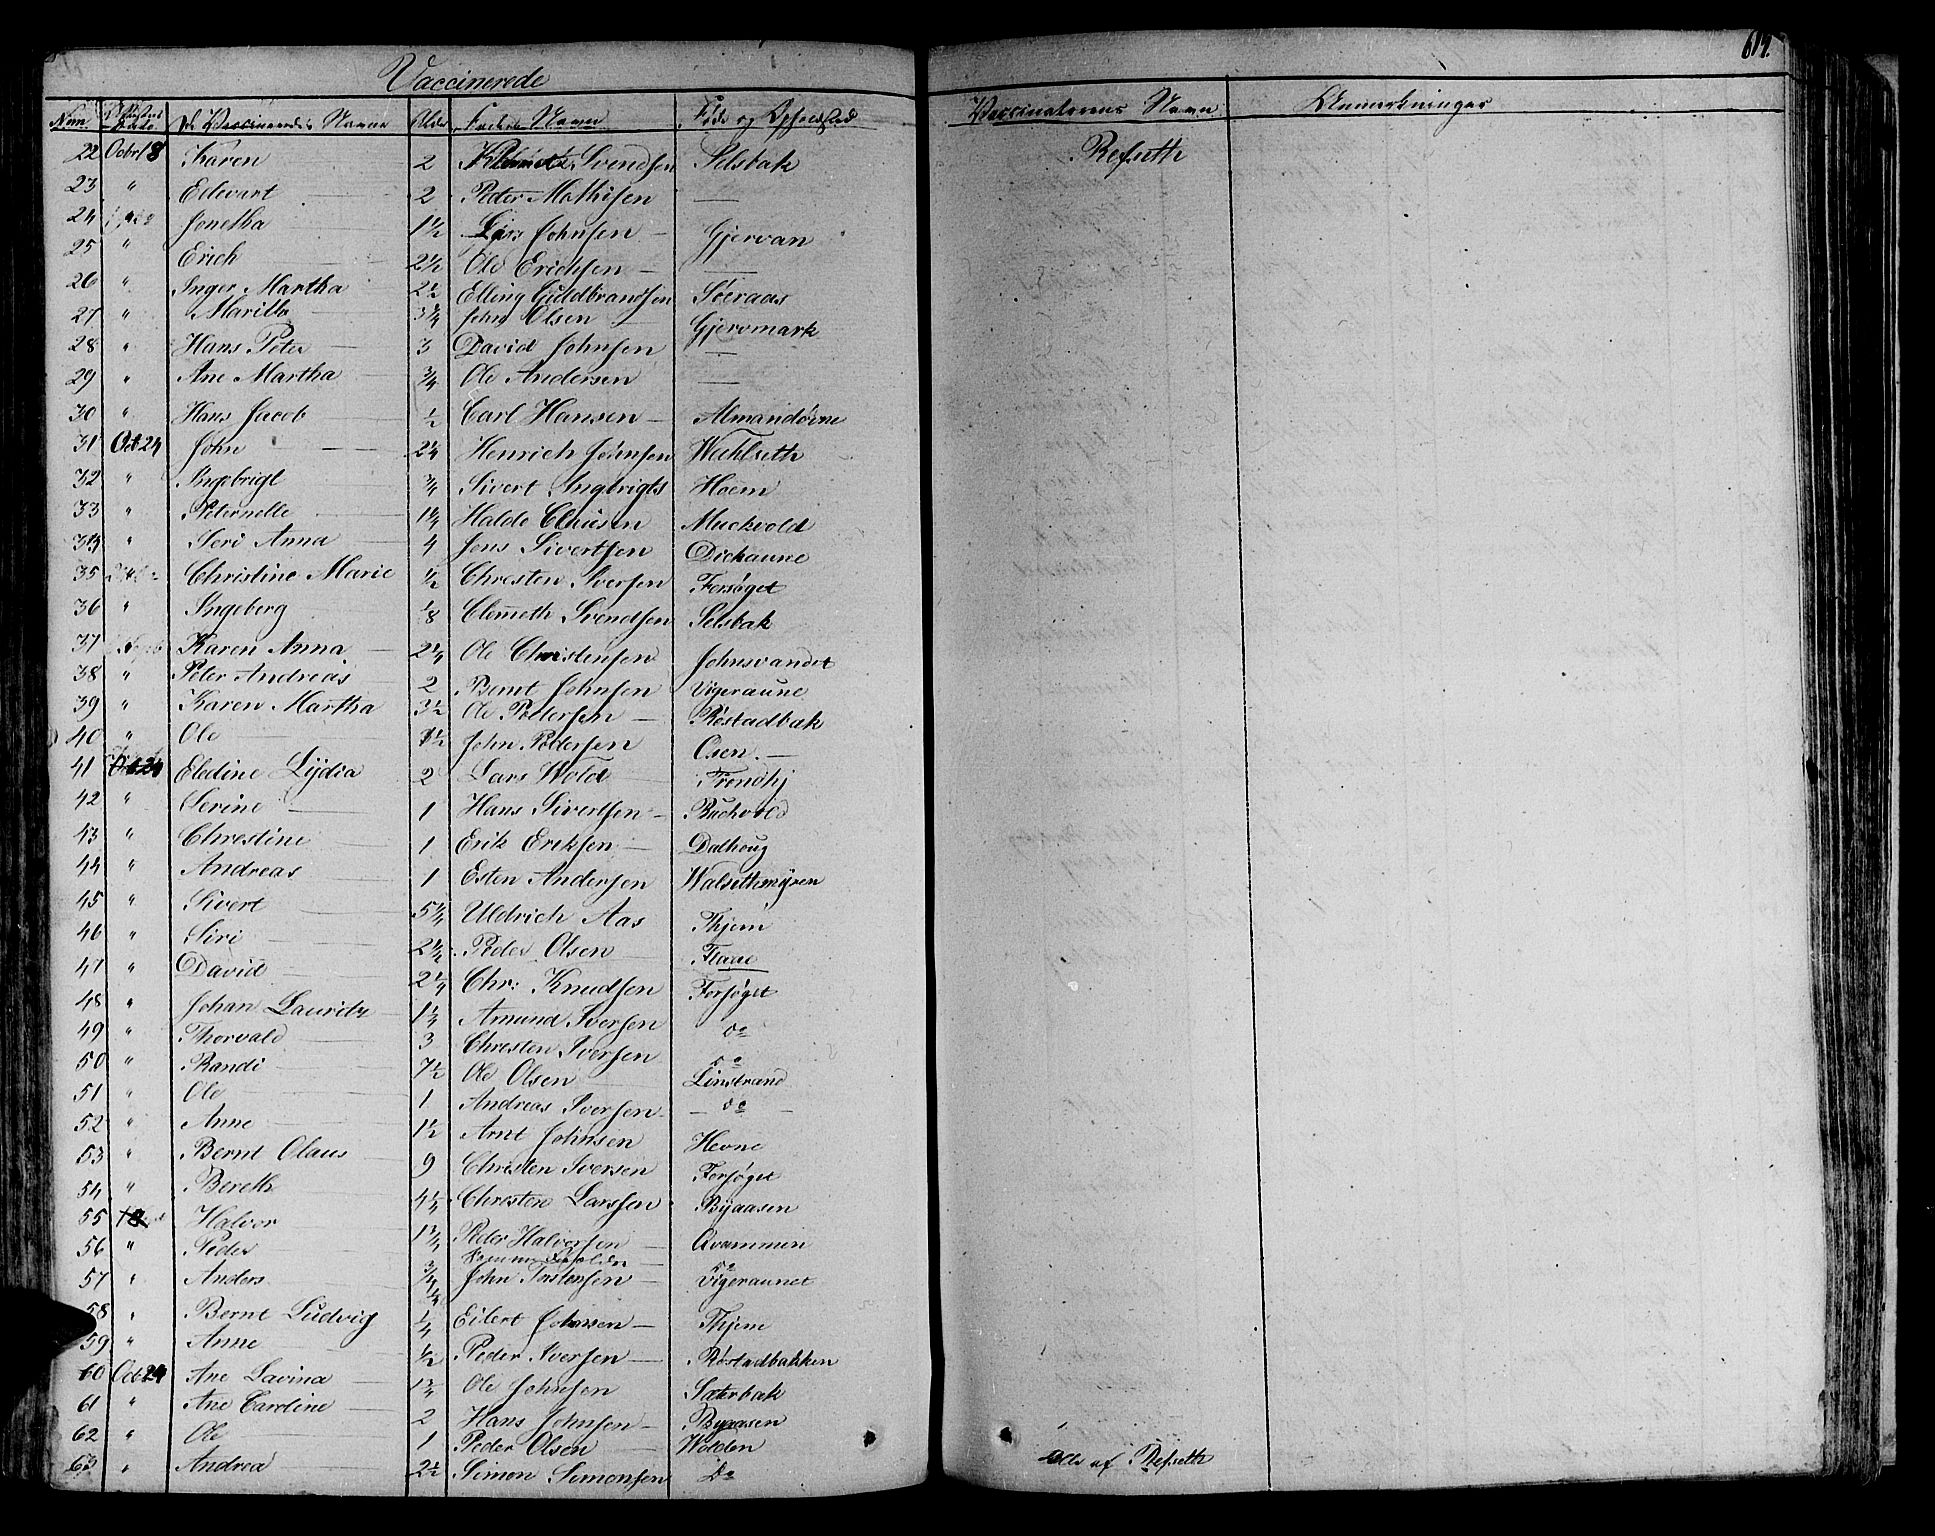 Vaccinerede
614.
Num. Dato De Vaccineredes Navne Alder Fadrens Navn Føde og Opholdsted Vaccinatorens Navn Anmerkninger
22 Octbr 18 Karen 2 Svendsen Selsbak Refseth
23 " Edevart 2 Peder Mathisen —
24 Jonetha 1½ Lars Johnsen — Gjervan
25 " Erich 2½ Ole Ericksen — —
26 " Inger Martha 2½ Elling Guldbrandsen Soeraas
27 " Marith 3¼ John Olsen — Gjervmark
28 " Hans Peter 3 David Johnsen —
29 " Ane Martha ¾ Ole Andersen —
30 " Hans Jacob ½ Carl Hansen — Almandørne
31 Oct 24 John 2¼ Henrich Johnsen Wuhlseth
32 " Ingebrigt ¾ Sivert Ingbrigts Hoem
33 " Peternelle 1¾ Halde Clausen Muckvold
34 " Seri Anna 4 Jens Sivertsen Dickaune
35 Christine Marie ½ Chresten Iversen Forsøget
36 " Ingeberg ⅛ Clemeth Svendsen Selsbak
37 Karen Anna 2¼ Ole Christensen Johnsvandet
38 " Peter Andreas 2 Bernt Johnsen Vigeraune
39 " Karen Martha 3½ Ole Pedersen — Røstadbak
40 " Ole 1½ John Pedersen Osen. —
41 Oct 24 Eledine Lydia 2 Lars Wold Trondhj
42 " Serine 1 Hans Sivertsen — Buchvold
43 " Chrestine 1 Erik Eriksen — Dalhoug
44 " Andreas 1 Esten Andersen Walsethmyren
45 " Sivert 5¾ Uldrich Aas Thjem
46 " Siri 2¾ Peder Olsen Flaae
47 " David 2¼ Chr: Knudsen Forsøget
48 " Johan Lauritz 1¾ Amund Iversen do
49 " Thorvald 3 Chresten Iversen do
50 " Randi 7½ Ole Olsen Linstrand
51 " Ole 1 Andreas Iversen — — do —
52 " Anne 1½ Arnt Johnsen Hevne
53 " Bernt Olaus 9 Christen Iversen Forsøget
54 " Bereth 4½ Chresten Larssen Byaasen
55 Halvor 1¾ Peder Halvorsen — Qvammen
56 " Peder ¾ do
57 " Anders ¼ John Torstensen Vigeraunet
58 " Bernt Ludvig ¼ Eilert Johnsen — Thjem
59 " Anne ½ Peder Iversen — Røstadbakken
60 Oct 24 Ane Lavina 1¾ Ole Johnsen Sæterbak
61 " Ane Caroline 2 Hans Johnsen — Byaasen
62 " Ole 1 Peder Olsen Wolden
63 " Andrea 2½ Simon Simonsen Do Alle af Refseth